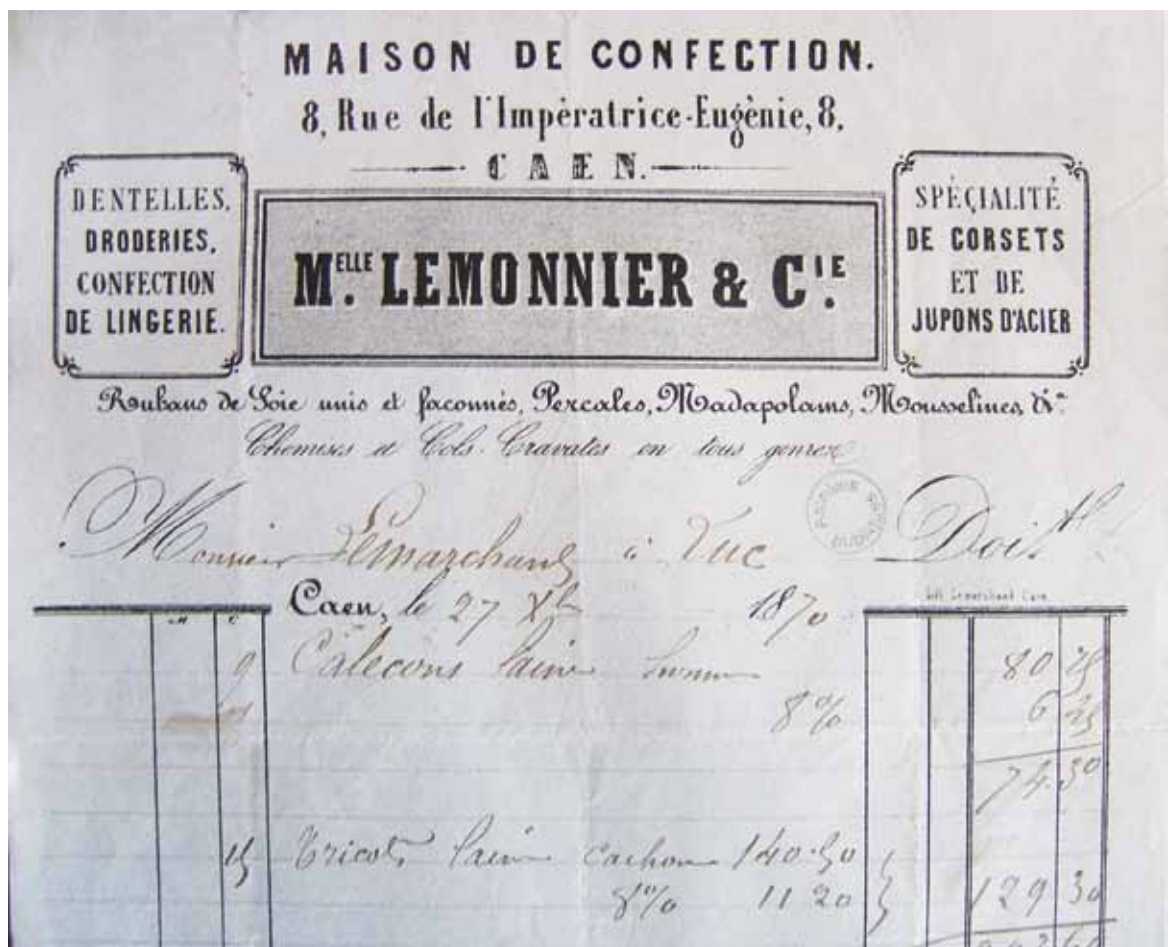 MAISON DE CONFECTION.
8, Rue de l'Impèratrice-Eugènie, 8,
CAEN.
DENTELLES,
DRODERIES,
CONFECTION
DE LINGERIE.
MELLE. LEMONNIER & CIE.
SPÉCIALITÉ
DE CORSETS
ET DE
JUPONS D'ACIER
Rubans de Soie unis et façonnés, Percales, Madapolams, Mousselines, &a.
Chemises et Cols-Cravates en tous genres
Monsieur Lemarchand à Luc Doit
Lith. Lemarchand Caen
Caen, le 27 Xbre 1870
9 Caleçons laine 80 25
8% 6
74.30
15 Tricots laine cachou 140.50
8% 11 20 129 30